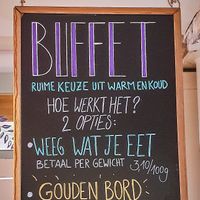 BUFFET
RUIME KEUZE UIT WARM EN KOUD
HOE WERKT HET?
2 OPTIES:
• WEEG WAT JE EET
BETAAL PER GEWICHT 3,10/100g
• GOUDEN BORD